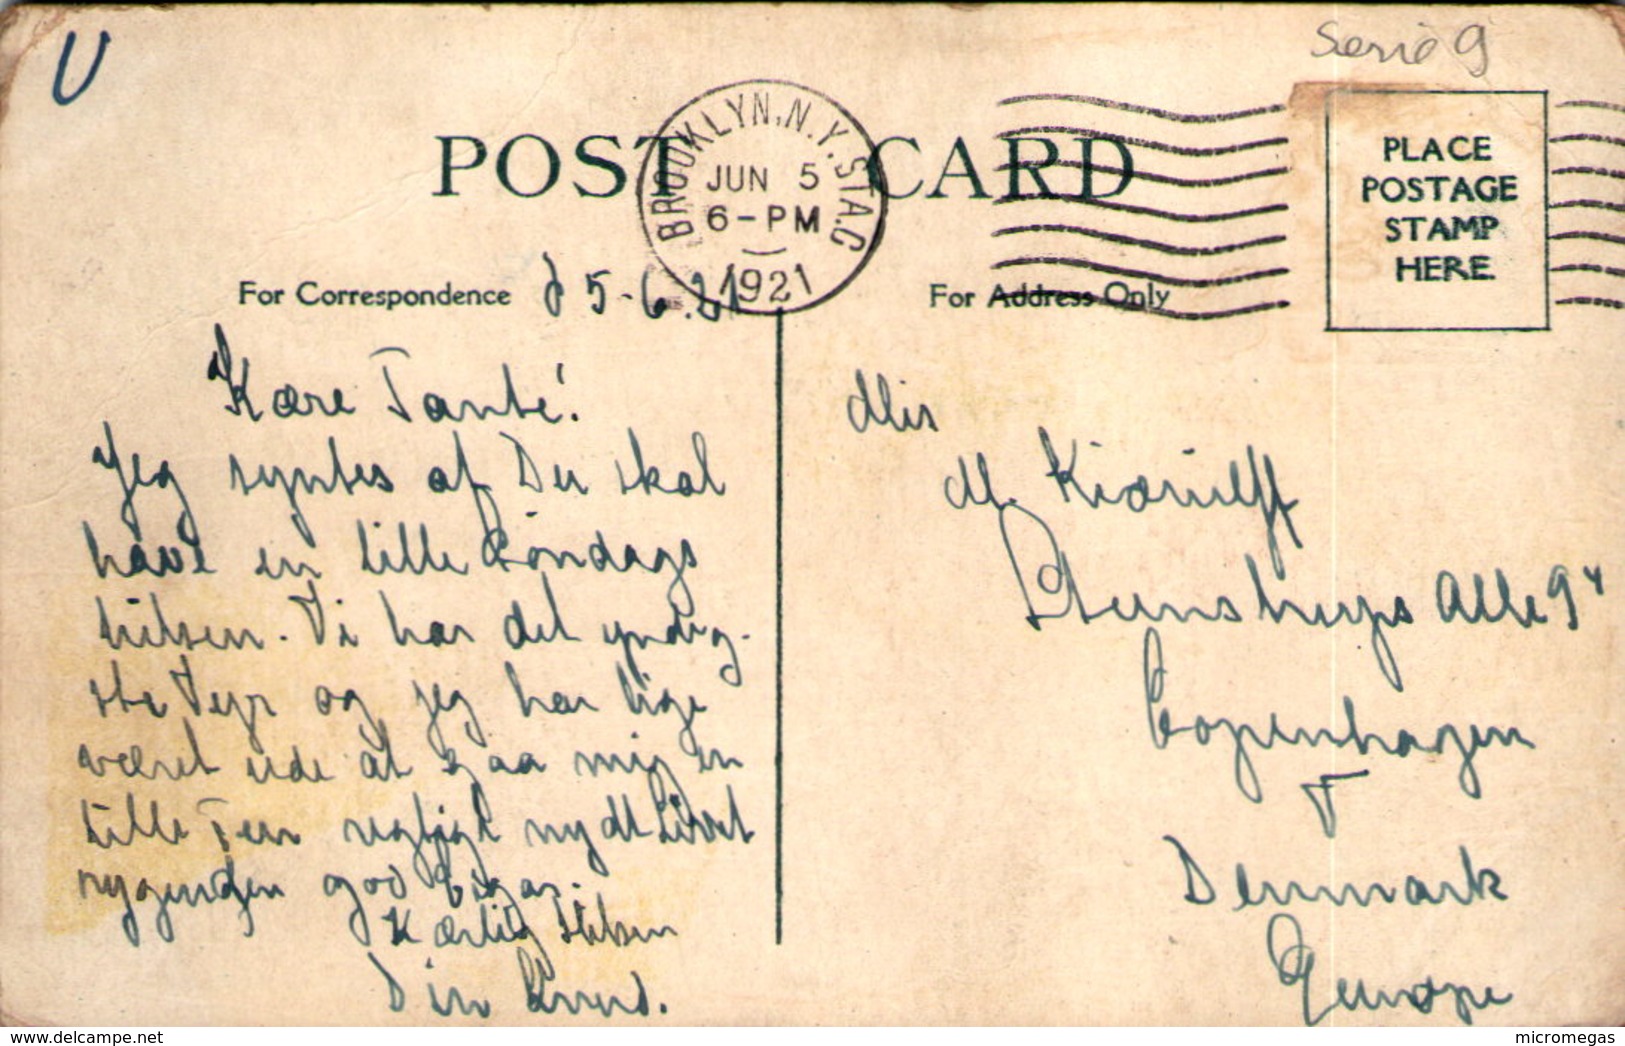 U
Serie 9
POST CARD
BROOKLYN, N.Y. STA.C
JUN 5
6-PM
1921
PLACE
POSTAGE
STAMP
HERE.
For Correspondence
5-6.21
For Address Only
Kære Tante!
Jeg syntes at Du skal
have en lille Söndags
hilsen. Vi har det yndig-
ste Vejr og jeg har lige
været ude at gaa mig en
lille Tur rigtigt nydt Livet
rygende en god Cigar.
Kærlig Hilsen
Din Knud.
Mis
M. Kiærulff
Steenstrups Alle 9
Copenhagen
F
Denmark
Europe
www.delcampe.net
micromegas